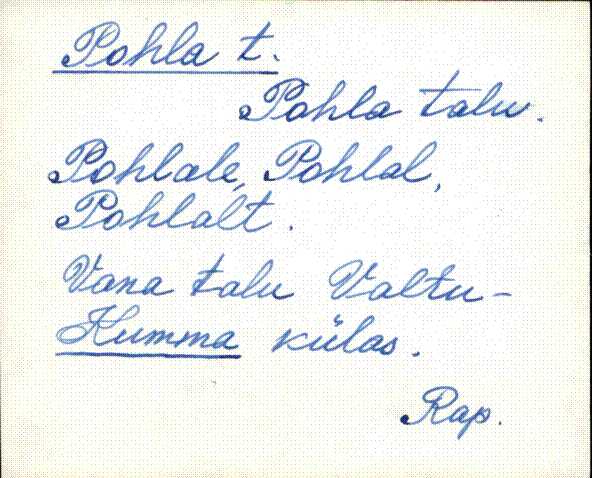 Pohla t.
Pohla talu.
Pohlale, Pohlal,
Pohlalt.
Vana talu Valtu-
Kumma külas.
Rap.